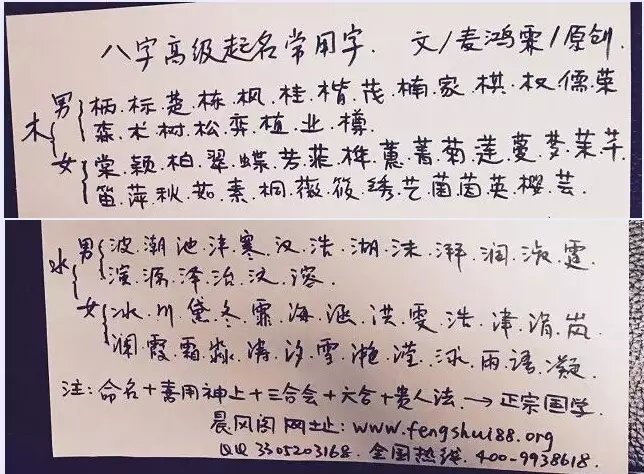 八字高级起名常用字. 文/麦鸿霖/原创.
木
男 柄.标.楚.栋.枫.桂.楷.茂.楠.家.棋.权.儒.荣
森.术.树.松.弈.植.业.樽.
女 棠.颖.柏.翠.蝶.芳.菲.桦.蕙.菁.菊.莲.蔓.梦.茉.芊.
笛.萍.秋.茹.素.桐.薇.筱.绣.艺.茵.英.樱.芸.
水
男 波.潮.池.沣.寒.汉.浩.湖.沫.湃.润.淑.霆.
滨.源.泽.治.汶.溶.
女 冰.川.黛.冬.霏.海.涵.洪.雯.浩.津.涓.岚.
澜.霞.霜.淼.涛.汐.雪.滟.滢.泳.雨.语.凝.
注:命名+喜用神上+三合会+六合+贵人法.→正宗国学.
晨风阁 网址:www.fengshui88.org
QQ 3305203168. 全国热线. 400-9938618.